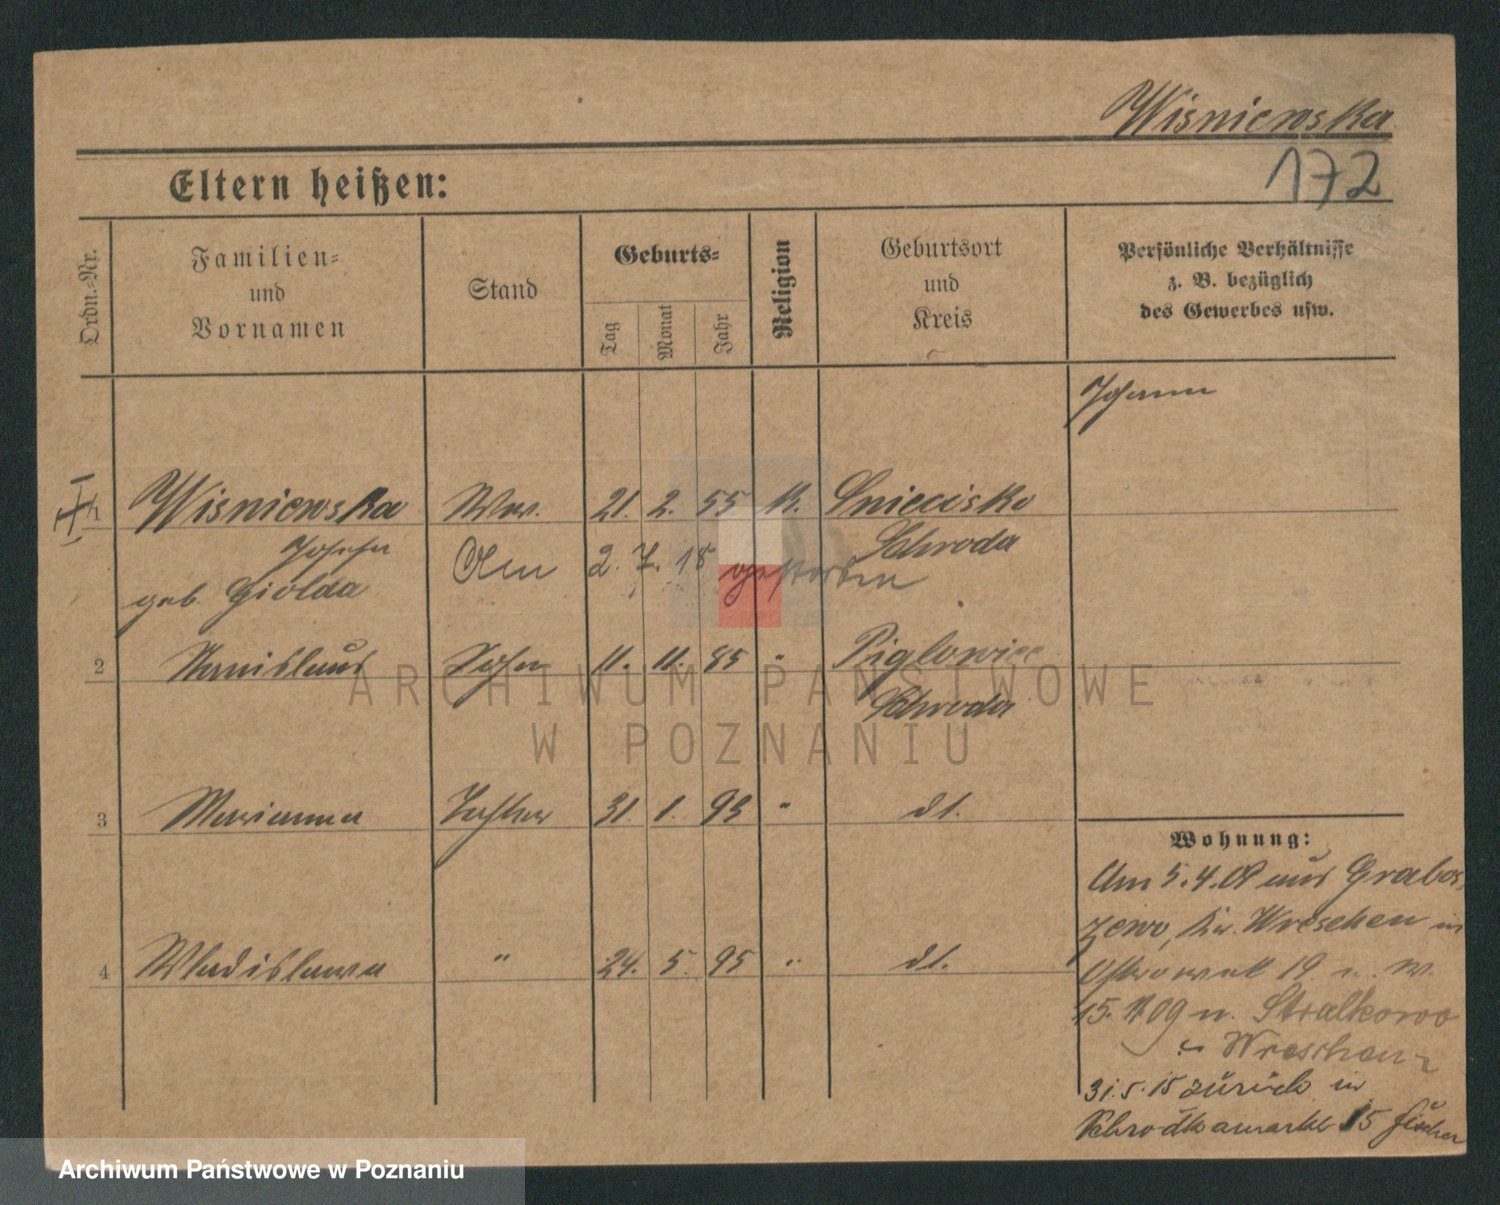 Wisniewska
172
Eltern heißen:
Ordn.-Nr.
Familien-
und
Vornamen
Stand
Geburts-
Tag
Monat
Jahr
Religion
Geburtsort
und
Kreis
Persönliche Verhältnisse
z. B. bezüglich
des Gewerbes usw.
Johann
1 Wisniewska Ww. 21. 2. 55 k. Sniecisko
Josefa Schroda
geb. Giolda
Am 2. 7. 18 gestorben
2 Stanislaus Sohn 11. 11. 85 " Piglowice
Schroda
3 Marianna Tochter 31. 1. 93 " dt.
4 Wladislawa " 24. 5. 95 " dt.
Wohnung:
Am 5.4.09 aus Grabos
zewo, Kr. Wreschen in
19 n. W.
15. 09 n. Stralkowo
Wreschen
31.5.15 zurück in
Schrodkamarkt 15
ARCHIWUM PAŃSTWOWE
W POZNANIU
Archiwum Państwowe w Poznaniu